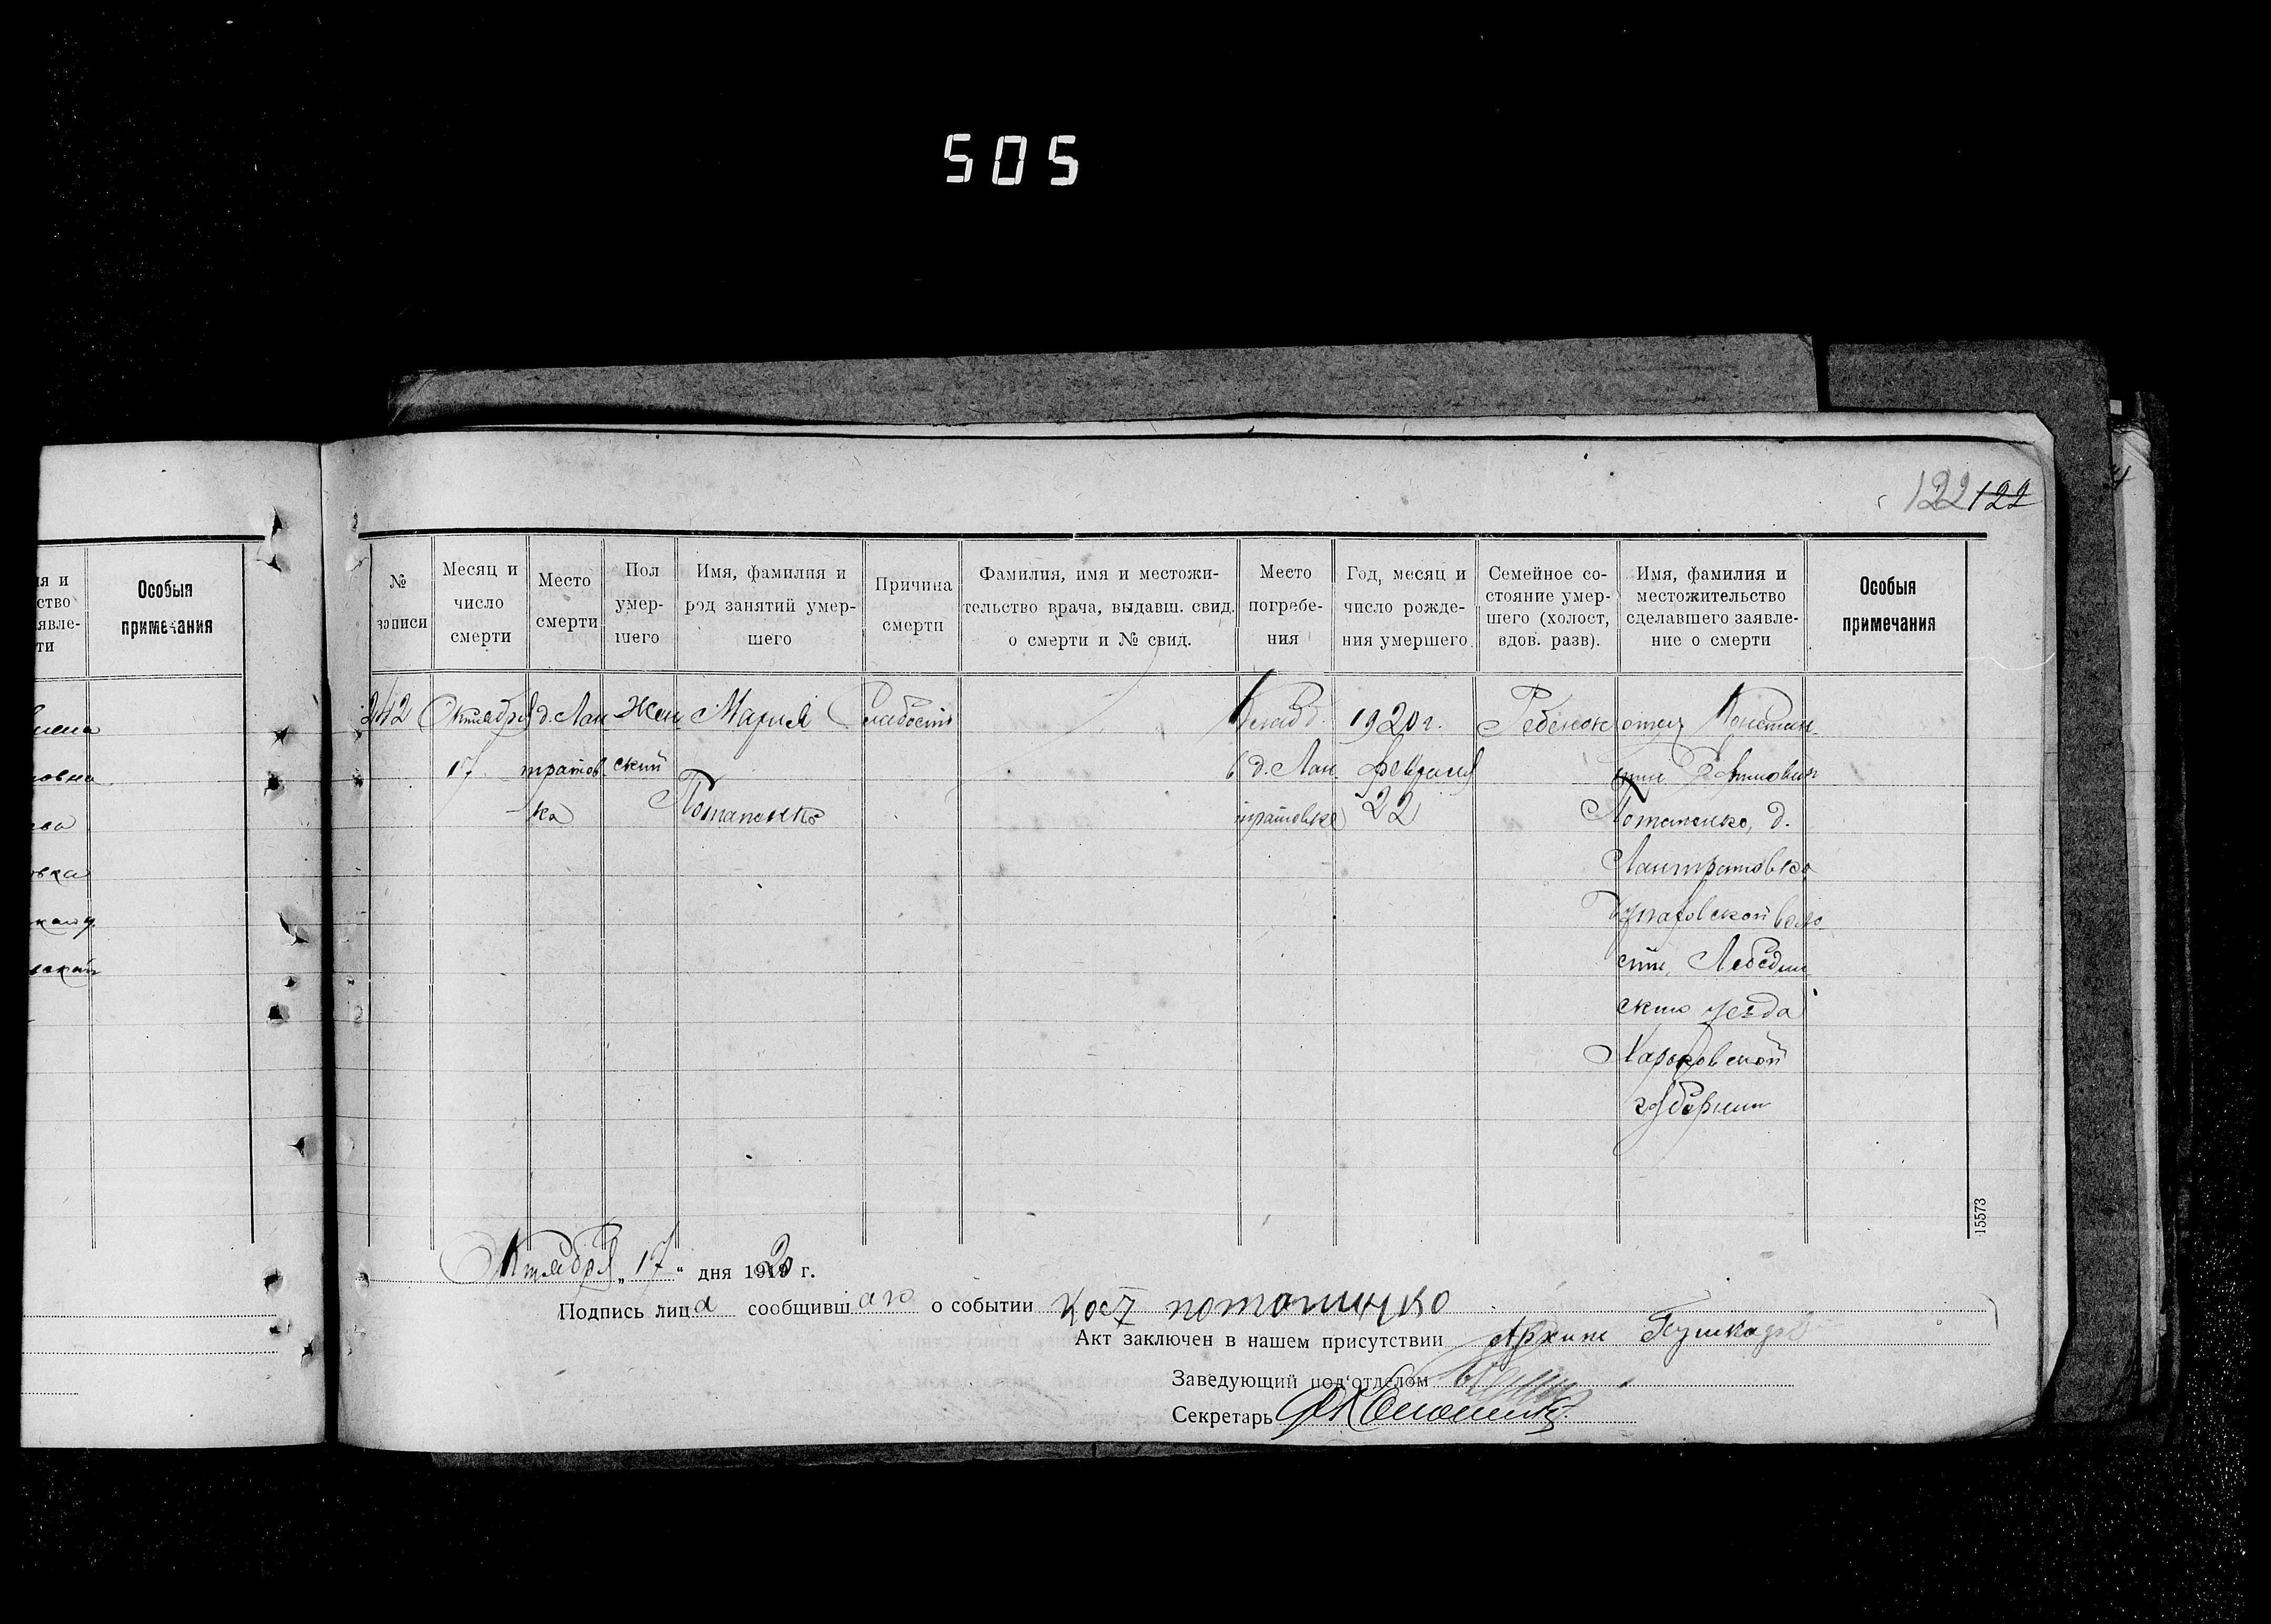 505
122 122
ия и
ство
явле-
ти
Особыя
примечания
№
записи
Месяц и
число
смерти
Место
смерти
Пол
умер-
шего
Имя, фамилия и
род занятий умер-
шего
Причина
смерти
Фамилия, имя и местожи-
тельство врача, выдавш. свид.
о смерти и № свид.
Место
погребе-
ния
Год, месяц и
число рожде-
ния умершего
Семейное со-
стояние умер-
шего (холост,
вдов. разв).
Имя, фамилия и
местожительство
сделавшего заявле-
ние о смерти
Особыя
примечания
242
Октября
17
д. Лан
тратов
ка
Жен
ский
Мария
Потапенко
Слабость
Кладб.
в д. Лан
тратовке
1920 г.
февраля
22
Ребенок
отец Констан-
тин
Потапенко, д.
Лантратовка
волос-
сти, Лебедин
ского уезда
Харьковской
губернии
15573
Октября „17“ дня 1920 г.
Подпись лица сообщившаго о событии Кост потопинко
Акт заключен в нашем присутствии Архип Пушкарь
Заведующий под'отделом
Секретарь